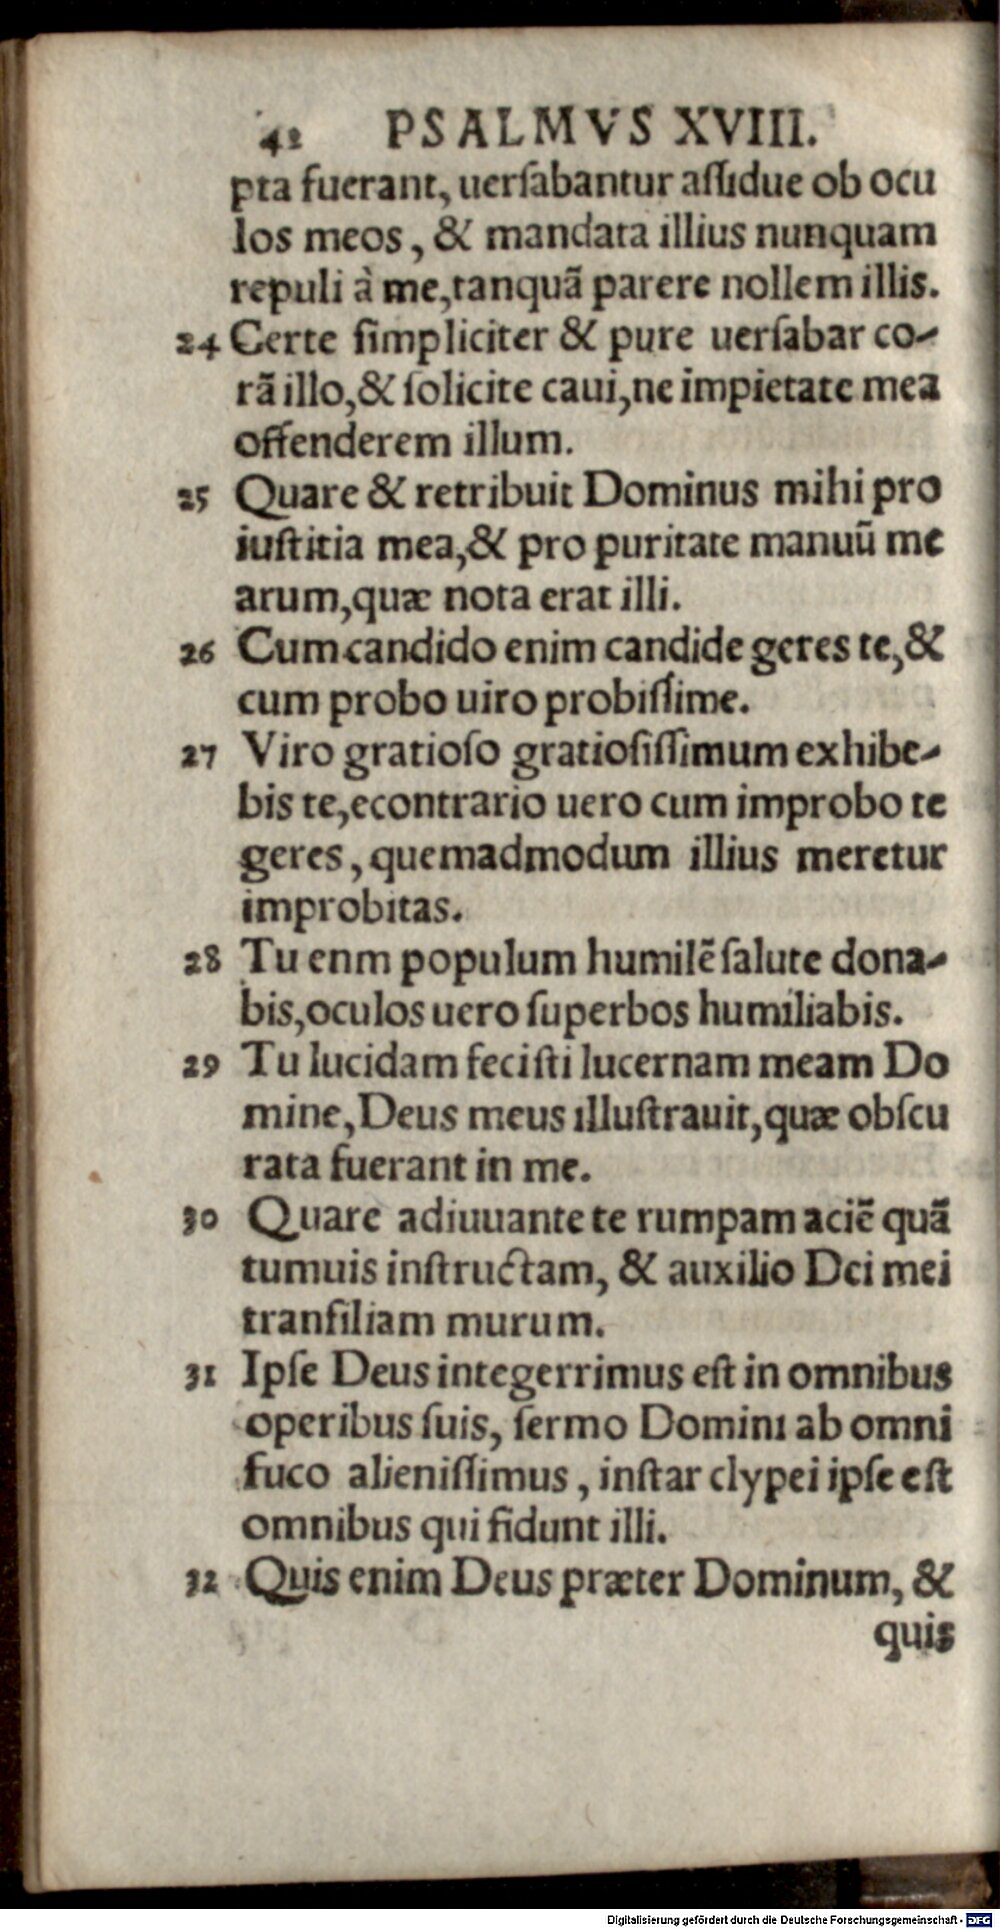 42 PSALMVS XVIII.
pta fuerant, uerſabantur aſſidue ob ocu
los meos, & mandata illius nunquam
repuli à me, tanquã parere nollem illis.
24 Certe ſimpliciter & pure uerſabar co-
rã illo, & ſolicite caui, ne impietate mea
offenderem illum.
25 Quare & retribuit Dominus mihi pro
iuſtitia mea, & pro puritate manuũ me
arum, quæ nota erat illi.
26 Cum candido enim candide geres te, &
cum probo uiro probiſſime.
27 Viro gratioſo gratioſiſſimum exhibe-
bis te, econtrario uero cum improbo te
geres, quemadmodum illius meretur
improbitas.
28 Tu enm populum humilẽ ſalute dona-
bis, oculos uero ſuperbos humiliabis.
29 Tu lucidam feciſti lucernam meam Do
mine, Deus meus illuſtrauit, quæ obſcu
rata fuerant in me.
30 Quare adiuuante te rumpam aciẽ quã
tumuis inſtructam, & auxilio Dei mei
tranſiliam murum.
31 Ipſe Deus integerrimus eſt in omnibus
operibus ſuis, ſermo Domini ab omni
fuco alieniſſimus, inſtar clypei ipſe eſt
omnibus qui fidunt illi.
32 Quis enim Deus præter Dominum, &
quis
Digitalisierung gefördert durch die Deutsche Forschungsgemeinschaft - DFG